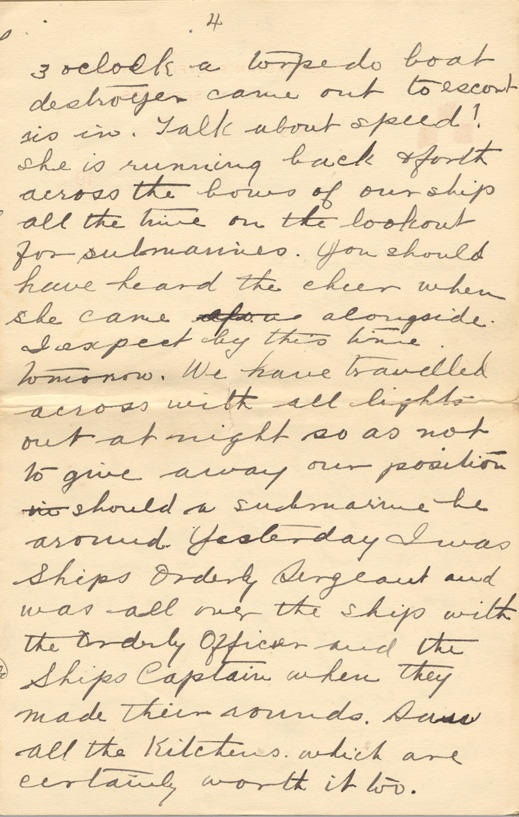 4
3 oclock a torpedo boat
destroyer came out to escort
us in. Talk about speed!
she is running back & forth
across the bows of our ship
all the time on the lookout
for submarines. You should
have heard the cheer when
she came alongside.
I expect by this time
tomorrow. We have travelled
across with all lights
out at night so as not
to give away our position
in should a submarine be
around. Yesterday I was
Ships Orderly Sergeant and
was all over the ship with
the Orderly Officer and the
Ships Captain when they
made their rounds. Saw
all the Kitchens. which are
certainly worth it too.